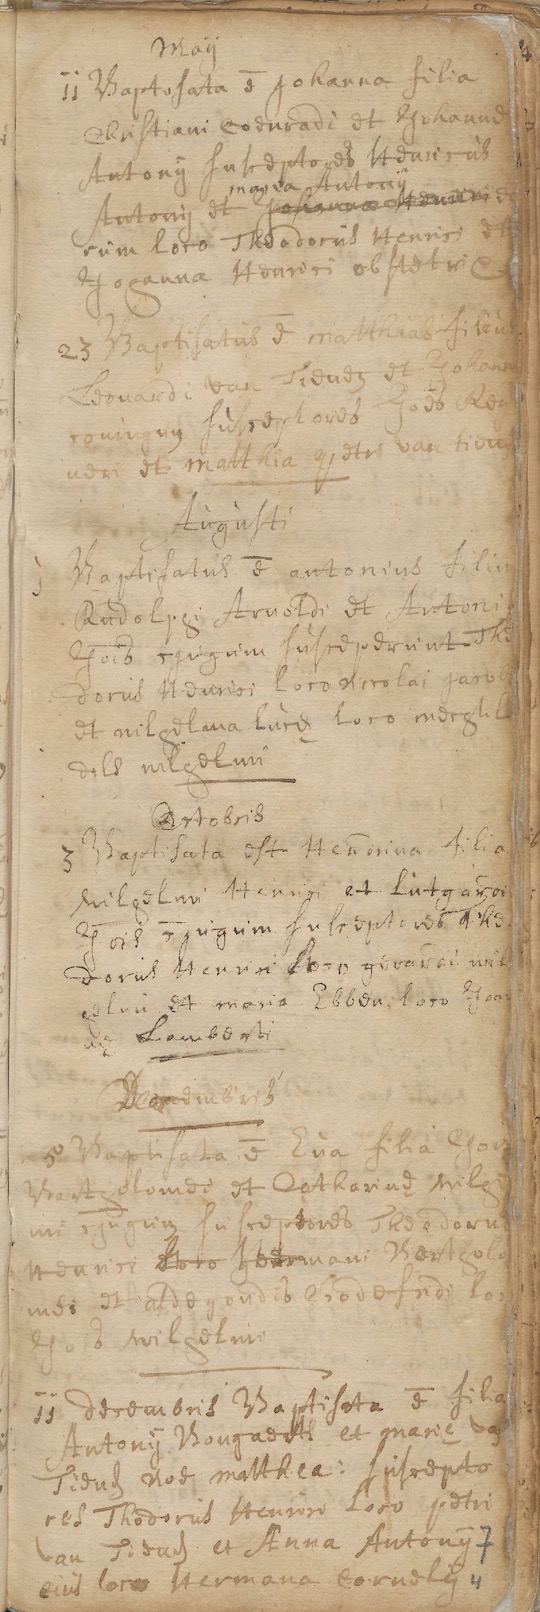 May
11 Baptisata ē Johanna filia
Christiani Coenradi et Johannę
Antony susceptores Henricus
maria Antony
Antony et Johanna Henrici
rum loco Theodorus Henrici et
Johanna Henrici obstetri
23 Baptisatus ē matthias filiu
Leonardi van Tienen et Johan
coniugum susceptores Joēs Re
neri et matthia petri van tien
Augusti
j Baptisatus ē antonius filiu
Rudolphi Arnoldi et Antoni
Jois cjugum susceperunt The
dorus Henrici loco Nicolai Jaco
et wilhelma lucę loco mechtil
dels wilhelmi
Octobris
3 Baptisata est Hendrina filia
wilhelmi Henrici et Lutgardi
Jois cjugum susceptores The
dorus Henrici loco gerardi wil
helmi et maria Ebben loco Joa
Lamberti
Decembris
50 Baptisata ē Eua filia
Bartholomei et Catharinę wilhel
mi cjugum susceptores Theodorus
Henrici loco Hermani Bertholo
mei et aldegondis Godefridi loc
Jois wilhelmi
11 decembris Baptisata ē filia
Antony Bongaerts et marię va
Tienen noē matthea: suscepto
res Thedorus Henrici loco petri
van Tienen et Anna Antony 7
eius loco Hermana Cornely 4